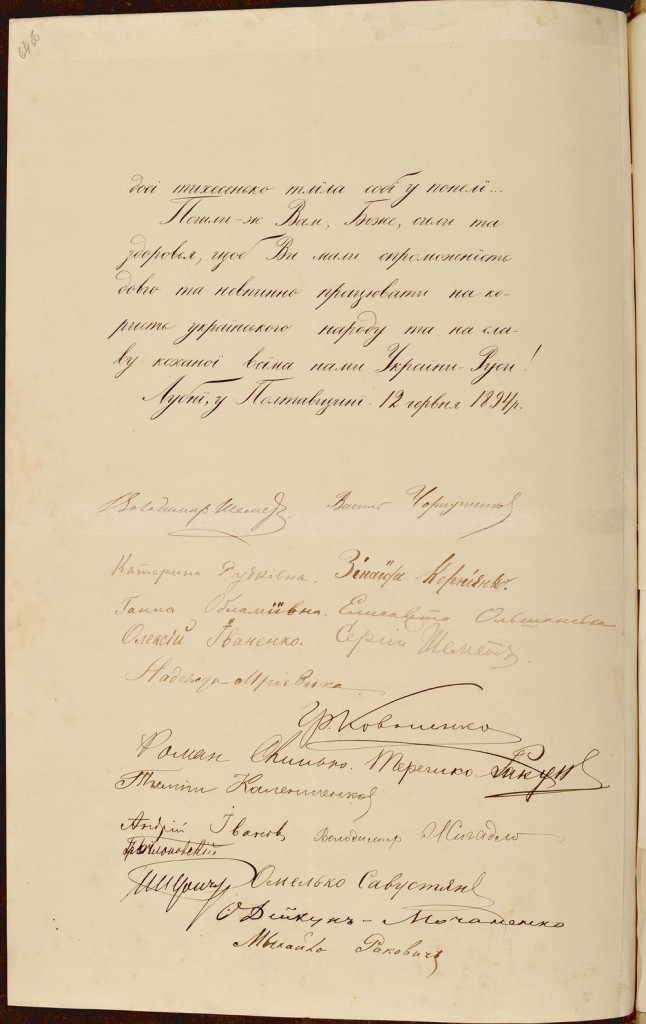 досі тихесенько тліла собі у попелі...
Пошли-ж Вам, Боже, сили та
здоровья, щоб Ви мали спроможність
довго та невпинно працювати на ко-
ристь українського народу та на сла-
ву коханої всіма нами України-Руси!
Лубні, у Полтавщині. 12 червня 1894р.
Володимир Шемет Василь
Катерина Рудківна. Зінаїда Корніенко.
Ганна Єлисавета Ольшанська
Олексій Іваненко. Сергій Шеметъ
Надежда
Коваленко
Роман
Калениченко
Андрій Іванов Володимир Жигадло
Омелько Савустян
Дейкунъ-Мочаненко
Михайло Раковичъ